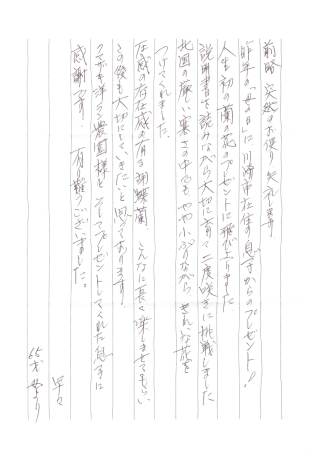 前略 突然のお便り失礼します
昨年の「母の日」に川崎市在住の息子からのプレゼント!!
人生初の蘭の花のプレゼントに飛び上りました
説明書を読みながら大切に育て二度咲きに挑戦しました
北国の厳しい寒さの中でも やや小ぶりながら きれいな花を
つけてくれました
圧感の存在感の有る胡蝶蘭 こんなに長く楽しませてもらい
この後も大切にしていきたいと思っております。
クマサキ洋ラン農園様と そしてプレゼントしてくれた息子に
感謝です 有り難うございました。
早々
65才 母より